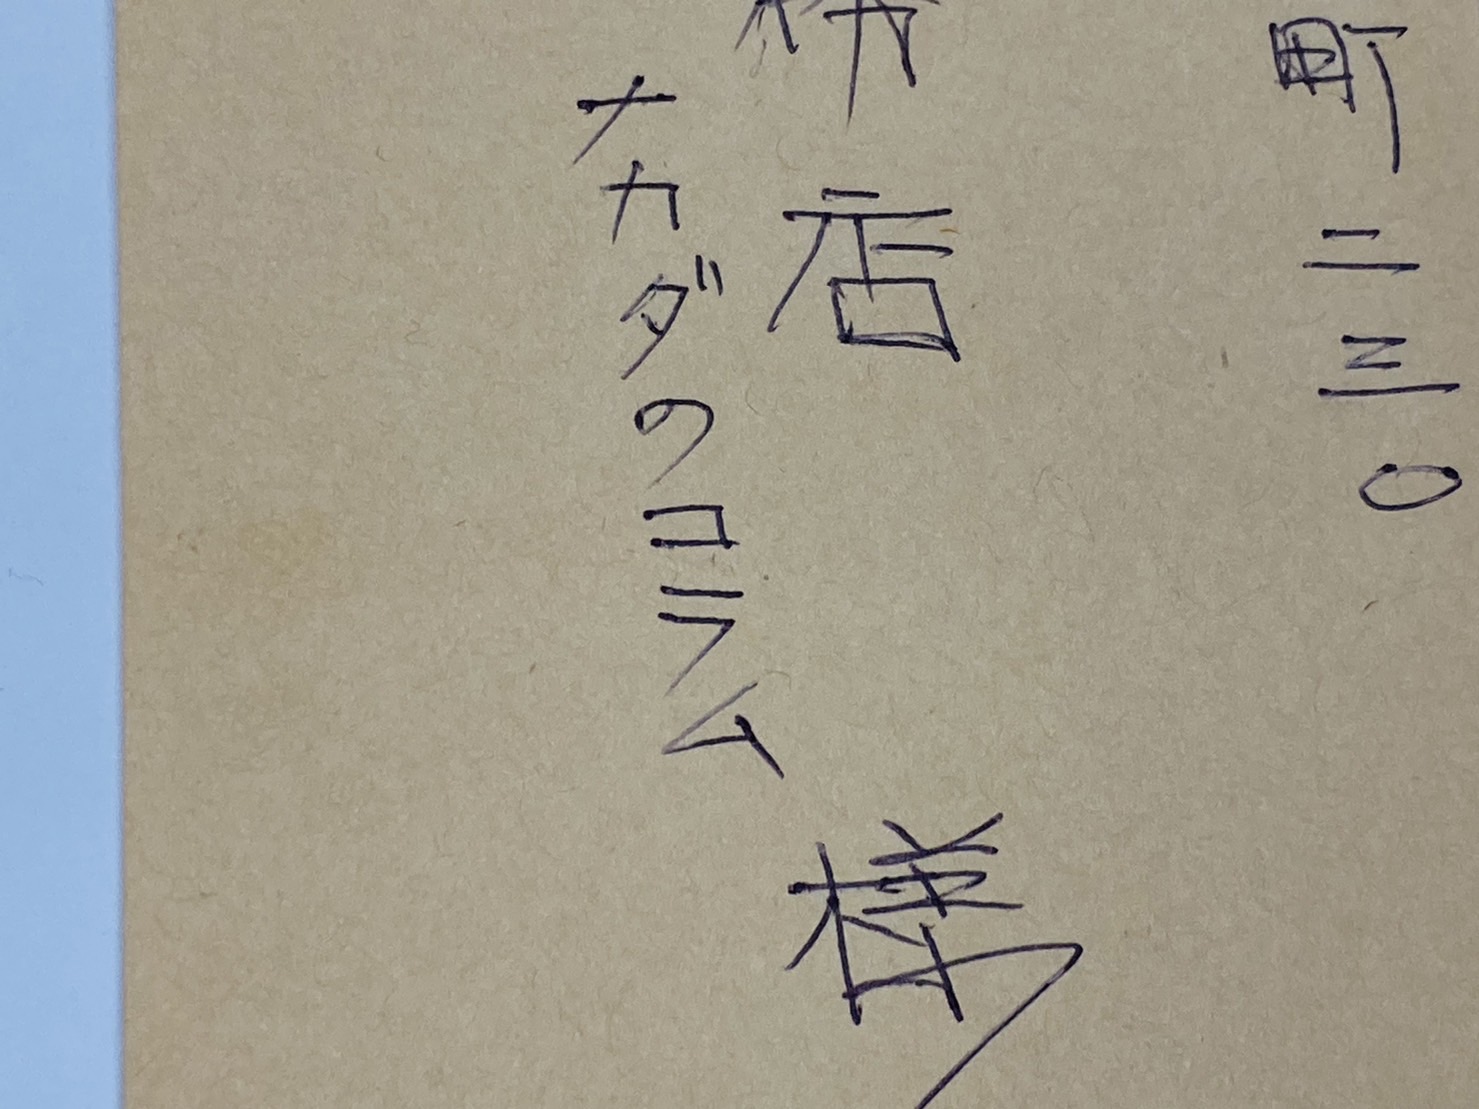 町二三〇
店
ナカダのコラム
様